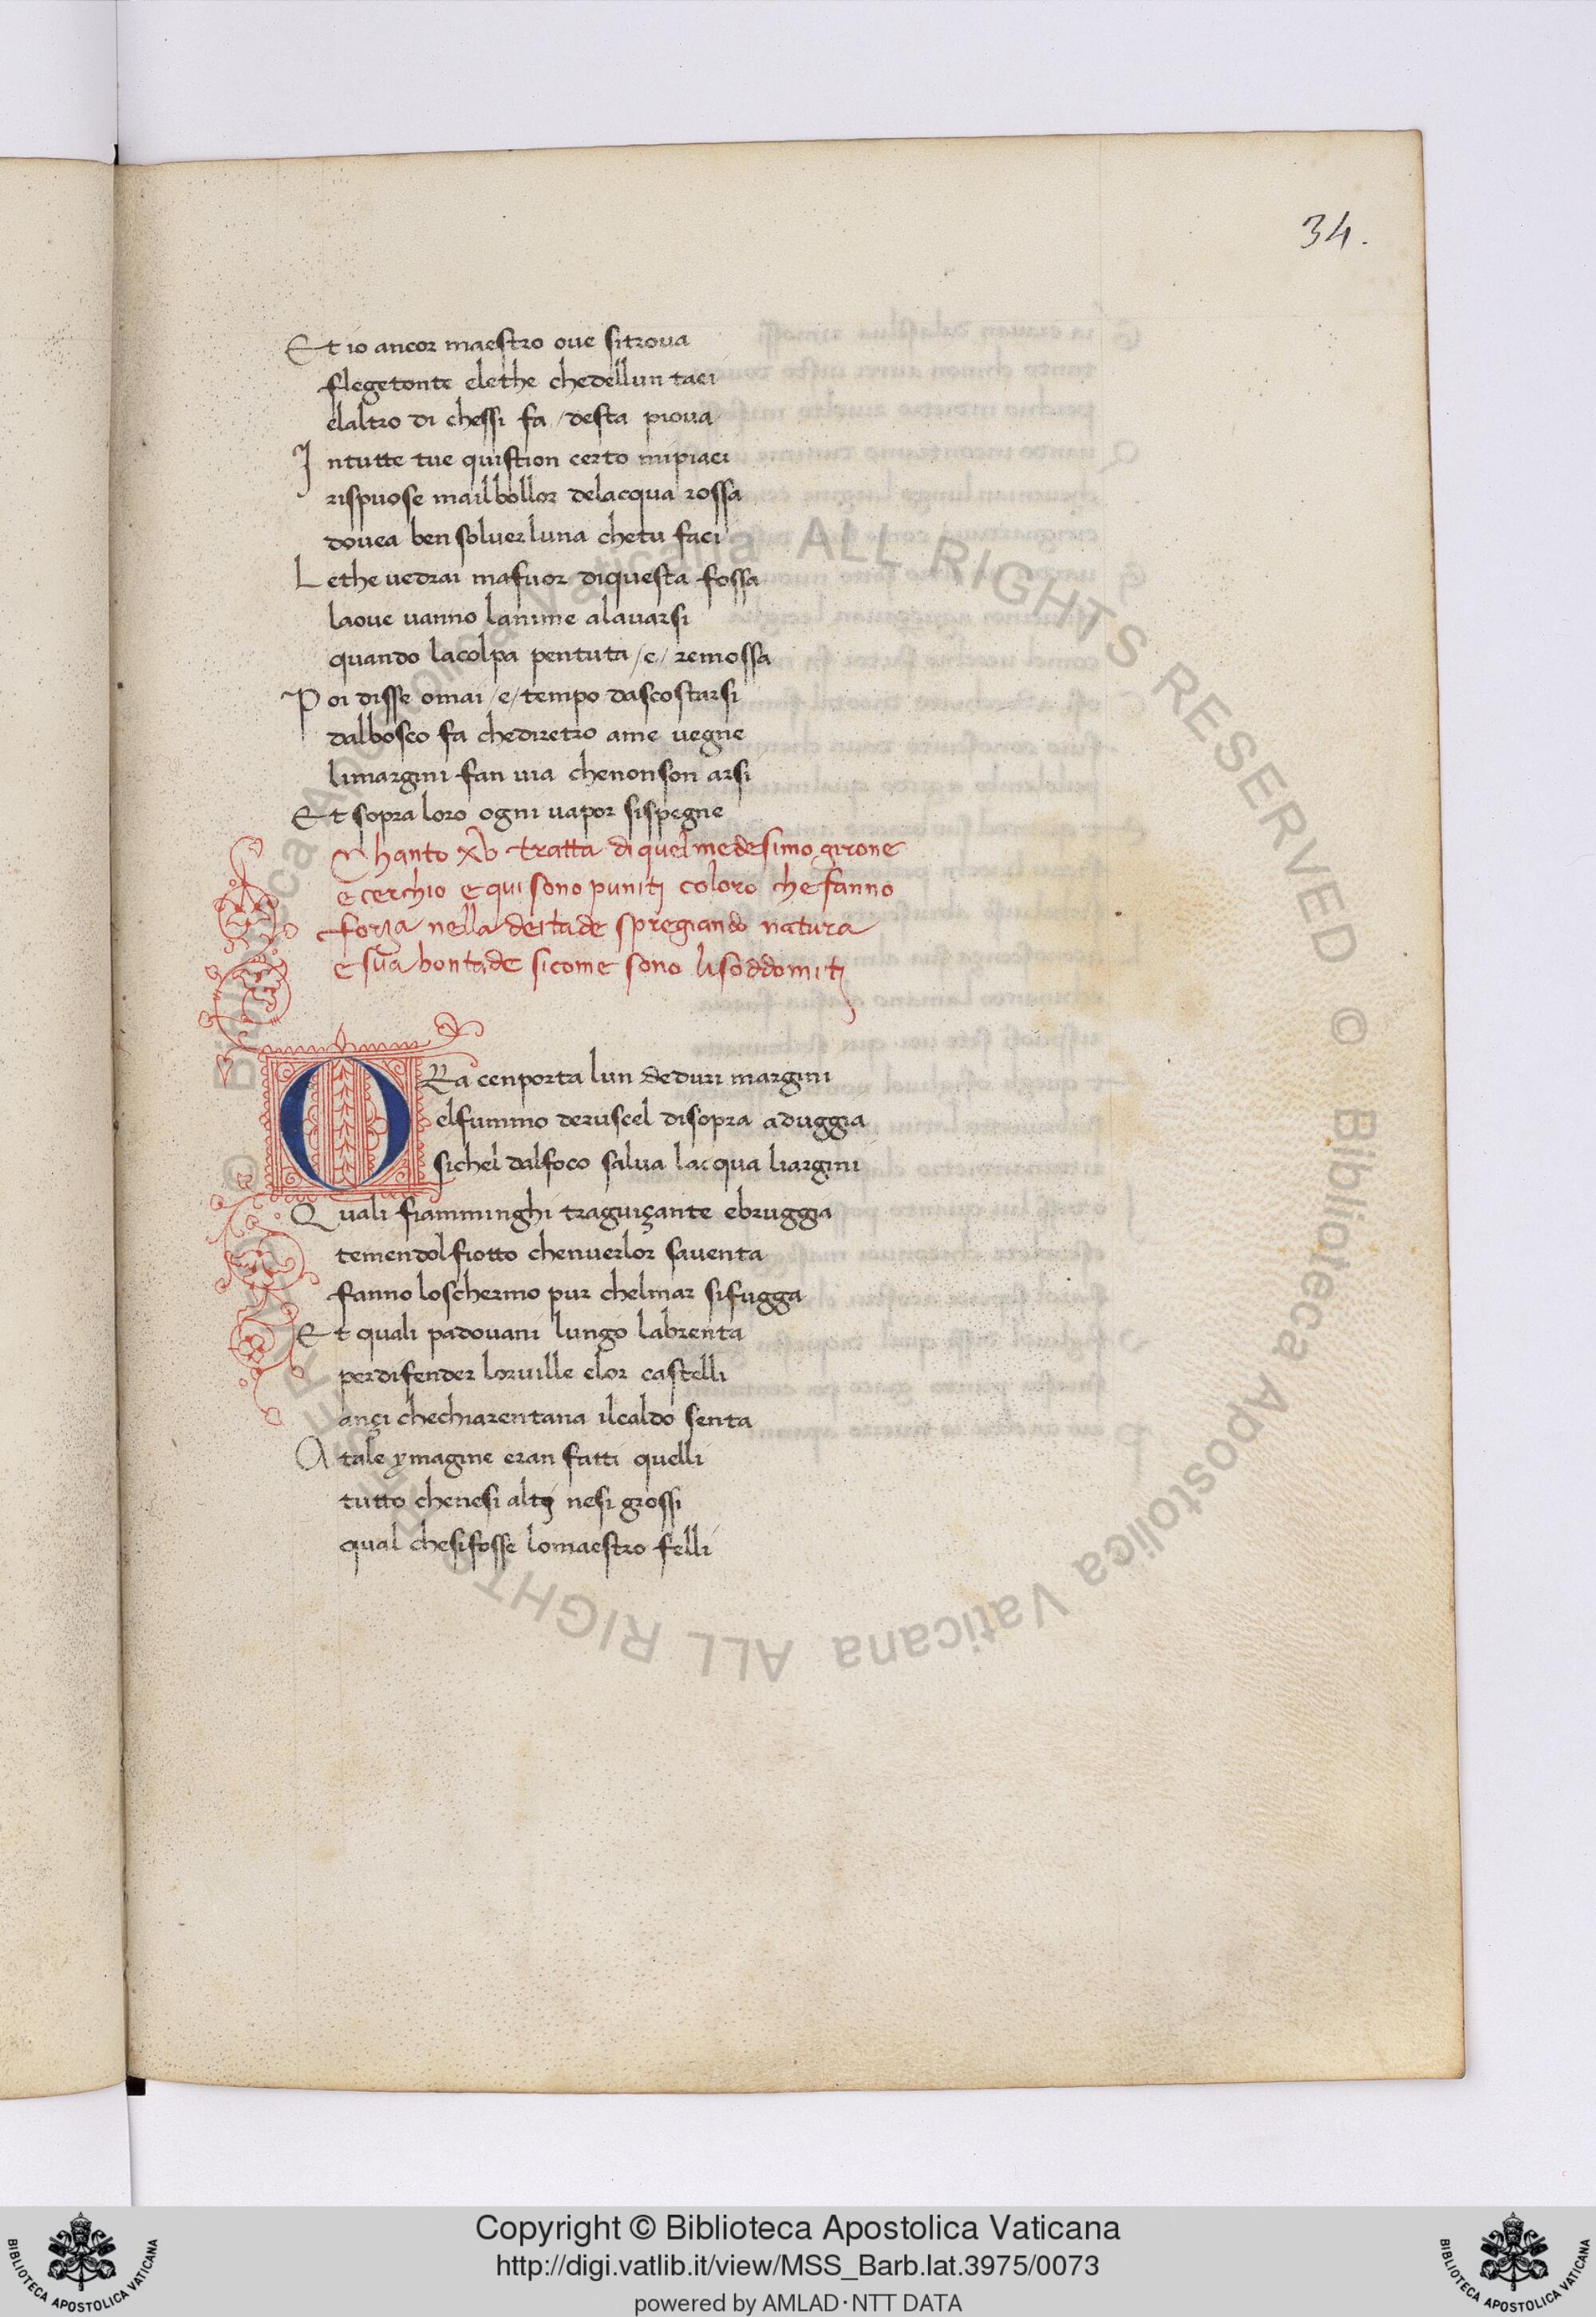 34.
Et io ancor maestro oue sitroua
flegetonte elethe chedellun taci
elaltro di chessi fa /desta pioua
Intutte tue quistion certo mipiaci
rispuose mailbollor delacqua rossa
douea ben soluer luna chetu faci
Lethe uedrai mafuor diquesta fossa
laoue uanno lanime alauarsi
quando lacolpa pentuta /e/ remossa
Poi disse omai /e/ tempo dascostarsi
dalbosco fa chediretro ame uegne
limargini fan uia chenonson arsi
Et sopra loro ogni uapor sispegne
Chanto xv tratta di quel medesimo girone
e cerchio e qui sono puniti coloro che fanno
forza nella deitade spregiando natura
e sua bontade sicome sono li soddomiti
ORa cenporta lun deduri margini
elfummo deruscel disopra aduggia
sichel dalfoco salua lacqua liargini
Quali fiamminghi traguiçante ebruggia
temendol fiotto chenuerlor sauenta
fanno loschermo pur chelmar sifugga
Et quali padouani lungo labrenta
perdifender loruille elor castelli
ançi chechiarentana ilcaldo senta
A tale ymagine eran fatti quelli
tutto chenesi alti nesi grossi
qual chesifosse lomaestro felli
© Biblioteca Apostolica Vaticana ALL RIGHTS RESERVED © Biblioteca Apostolica Vaticana ALL RIGHTS RESERVED
Copyright © Biblioteca Apostolica Vaticana
http://digi.vatlib.it/view/MSS_Barb.lat.3975/0073
powered by AMLAD·NTT DATA
BIBLIOTECA APOSTOLICA VATICANA
BIBLIOTECA APOSTOLICA VATICANA